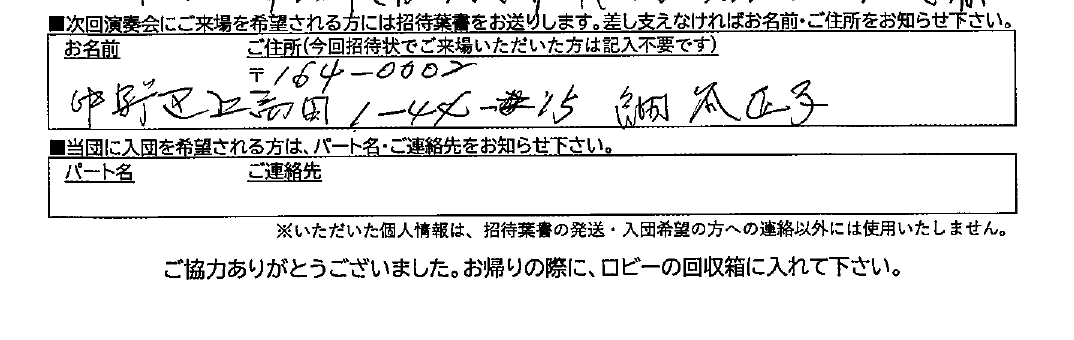 ■次回演奏会にご来場を希望される方には招待葉書をお送りします。差し支えなければお名前・ご住所をお知らせ下さい。
お名前 ご住所(今回招待状でご来場いただいた方は記入不要です)
〒164-0002
中野区上高田1-44-15 正子
■当団に入団を希望される方は、パート名・ご連絡先をお知らせ下さい。
パート名 ご連絡先
※いただいた個人情報は、招待葉書の発送・入団希望の方への連絡以外には使用いたしません。
ご協力ありがとうございました。お帰りの際に、ロビーの回収箱に入れて下さい。